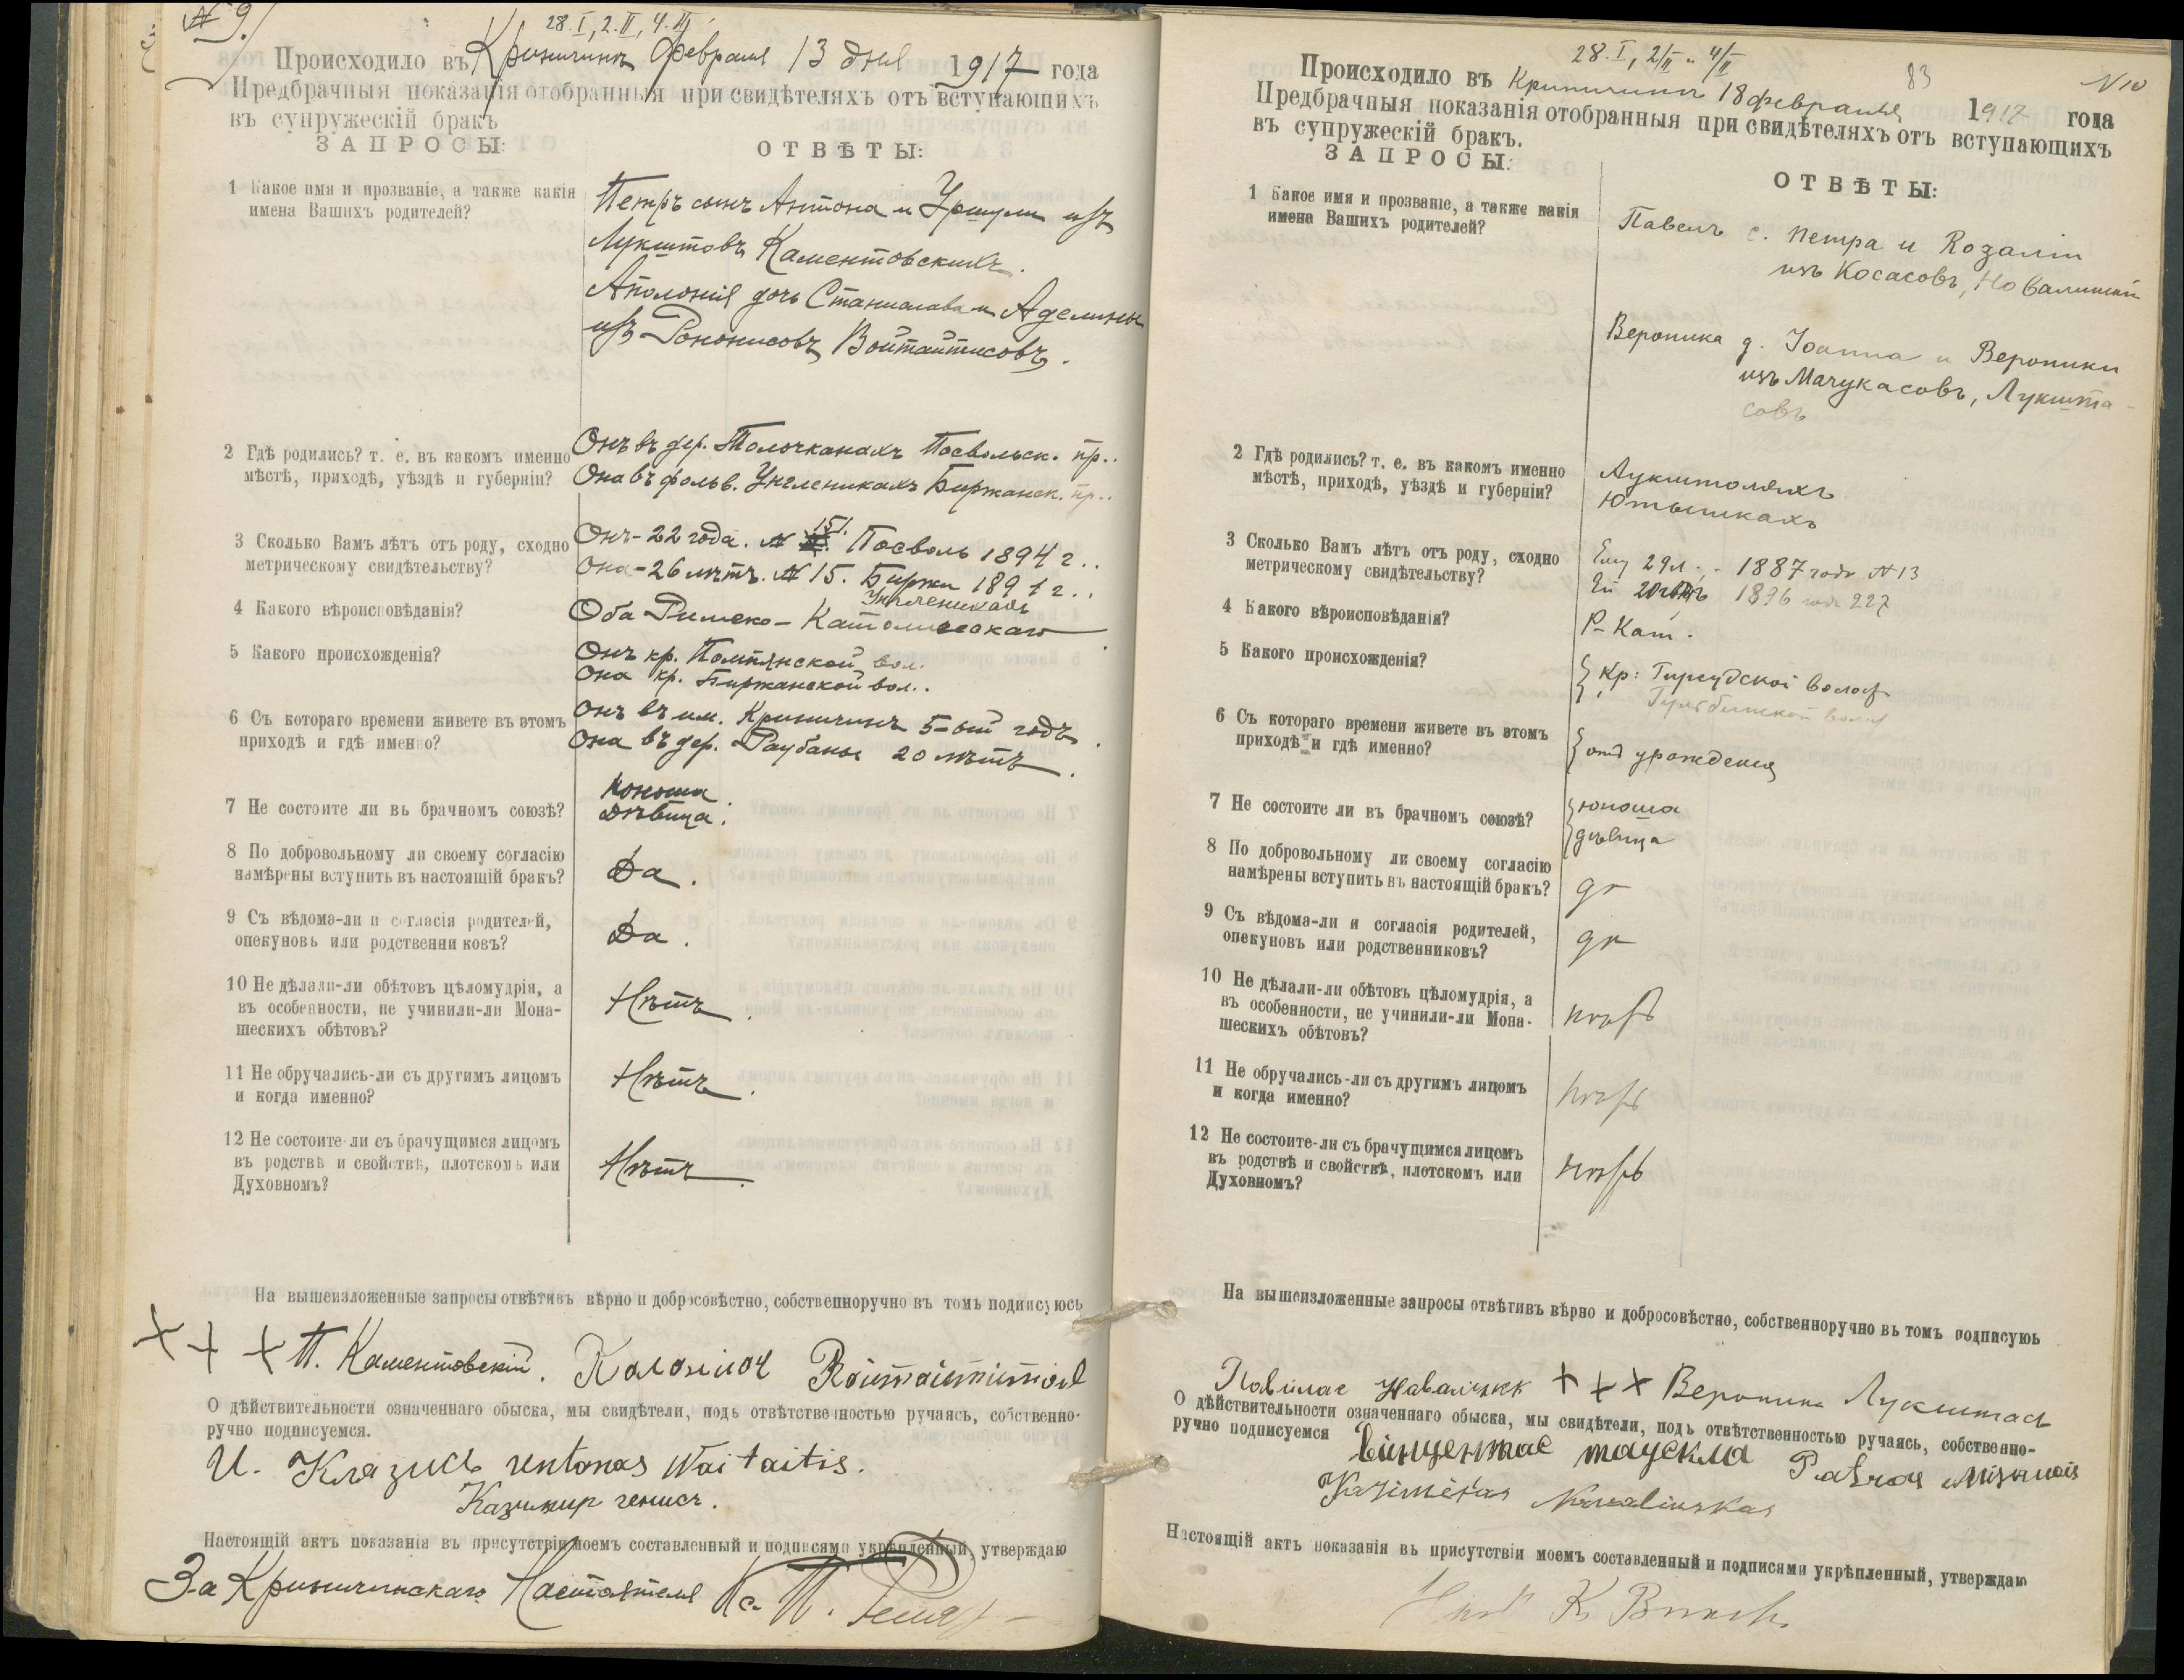 № 9.
28. I, 2. II, 4. II
Происходило въ Криничинѣ февраля 13 дня 1917 года
Предбрачныя показанія отобранныя при свидѣтеляхъ отъ вступающихъ
въ супружескій бракъ
ЗАПРОСЫ:
ОТВѢТЫ:
1 Какое имя и прозваніе, а также какія
имена Вашихъ родителей?
Петръ сынъ Антона и Уршули изъ
Лукштовъ Каментовскихъ.
Аполонія дочь Станислава и Аделины
изъ Войтайтисовъ.
2 Гдѣ родились? т. е. въ какомъ именно
мѣстѣ, приходѣ, уѣздѣ и губерніи?
Онъ въ дер. Толочканахъ Посвольск. пр..
Она въ фольв. Унглениках Биржанск. пр..
3 Сколько Вамъ лѣтъ отъ роду, сходно
метрическому свидѣтельству?
Онъ - 22 года. № 151. Посволь 1894 г..
Она - 26 лѣтъ. № 15. Биржи 1891 г..
4 Какого вѣроисповѣданія?
Оба Римско-Католическаго
5 Какого происхожденія?
Онъ кр. Помпянской вол.
Она кр. Биржанской вол..
6 Съ котораго времени живете въ этомъ
приходѣ и гдѣ именно?
Онъ въ им. Криничинъ 5-ый годъ.
Она въ дер. Раубаны 20 лѣтъ.
7 Не состоите ли въ брачномъ союзѣ?
Юноша.
Дѣвица.
8 По добровольному ли своему согласію
намѣрены вступить въ настоящій бракъ?
Да.
9 Съ вѣдома-ли и согласія родителей,
опекуновъ или родственниковъ?
Да.
10 Не дѣлали-ли обѣтовъ цѣломудрія, а
въ особенности, не учинили-ли Мона-
шескихъ обѣтовъ?
Нѣтъ.
11 Не обручались-ли съ другимъ лицомъ
и когда именно?
Нѣтъ.
12 Не состоите-ли съ брачущимся лицомъ
въ родствѣ и свойствѣ, плотскомъ или
Духовномъ?
Нѣтъ.
На вышеизложенные запросы отвѣтивъ вѣрно и добросовѣстно, собственноручно въ томъ подписуюсь
+ + + П. Каментовскій.
О дѣйствительности означеннаго обыска, мы свидѣтели, подъ отвѣтственностью ручаясь, собственно-
ручно подписуемся.
И. Клязисъ Antanas Waitaitis.
Казимир
Настоящій актъ показанія въ присутствіи моемъ составленный и подписями укрѣпленный, утверждаю
За Криничинскаго Настоятеля Кс. П.
28. I, 2/II и 4/II
83
N 10
Происходило въ Криничинѣ 18 февраля 1917 года
Предбрачныя показанія отобранныя при свидѣтеляхъ отъ вступающихъ
въ супружескій бракъ.
ЗАПРОСЫ:
ОТВѢТЫ:
1 Какое имя и прозваніе, а также какія
имена Вашихъ родителей?
Павелъ с. Петра и Rозаліи
изъ Косасовъ, Новалинскій
Вероника д. Іоанна и Вероники
изъ Мачукасовъ, Лукшта-
совъ
2 Гдѣ родились? т. е. въ какомъ именно
мѣстѣ, приходѣ, уѣздѣ и губерніи?
Аукштоляхъ
Ютышкахъ
3 Сколько Вамъ лѣтъ отъ роду, сходно
метрическому свидѣтельству?
Ему 29 л. - 1887 годъ N 13
Ей 20 1896 годъ 227
4 Какого вѣроисповѣданія?
Р-Кат.
5 Какого происхожденія?
Кр: Гирсудской волос.
6 Съ котораго времени живете въ этомъ
приходѣ и гдѣ именно?
отъ урожденія
7 Не состоите ли въ брачномъ союзѣ?
юноша
дѣвица
8 По добровольному ли своему согласію
намѣрены вступить въ настоящій бракъ?
да
9 Съ вѣдома-ли и согласія родителей,
опекуновъ или родственниковъ?
да
10 Не дѣлали-ли обѣтовъ цѣломудрія, а
въ особенности, не учинили-ли Мона-
шескихъ обѣтовъ?
нѣтъ
11 Не обручались-ли съ другимъ лицомъ
и когда именно?
нѣтъ
12 Не состоите-ли съ брачущимся лицомъ
въ родствѣ и свойствѣ, плотскомъ или
Духовномъ?
нѣтъ
На вышеизложенные запросы отвѣтивъ вѣрно и добросовѣстно, собственноручно въ томъ подписуюь
Повилас + + + Вероника Лукштасъ
О дѣйствительности означеннаго обыска, мы свидѣтели, подъ отвѣтственностью ручаясь, собственно-
ручно подписуемся Винцентас
Kazimieras Navalinskas
Настоящій актъ показанія въ присутствіи моемъ составленный и подписями укрѣпленный, утверждаю